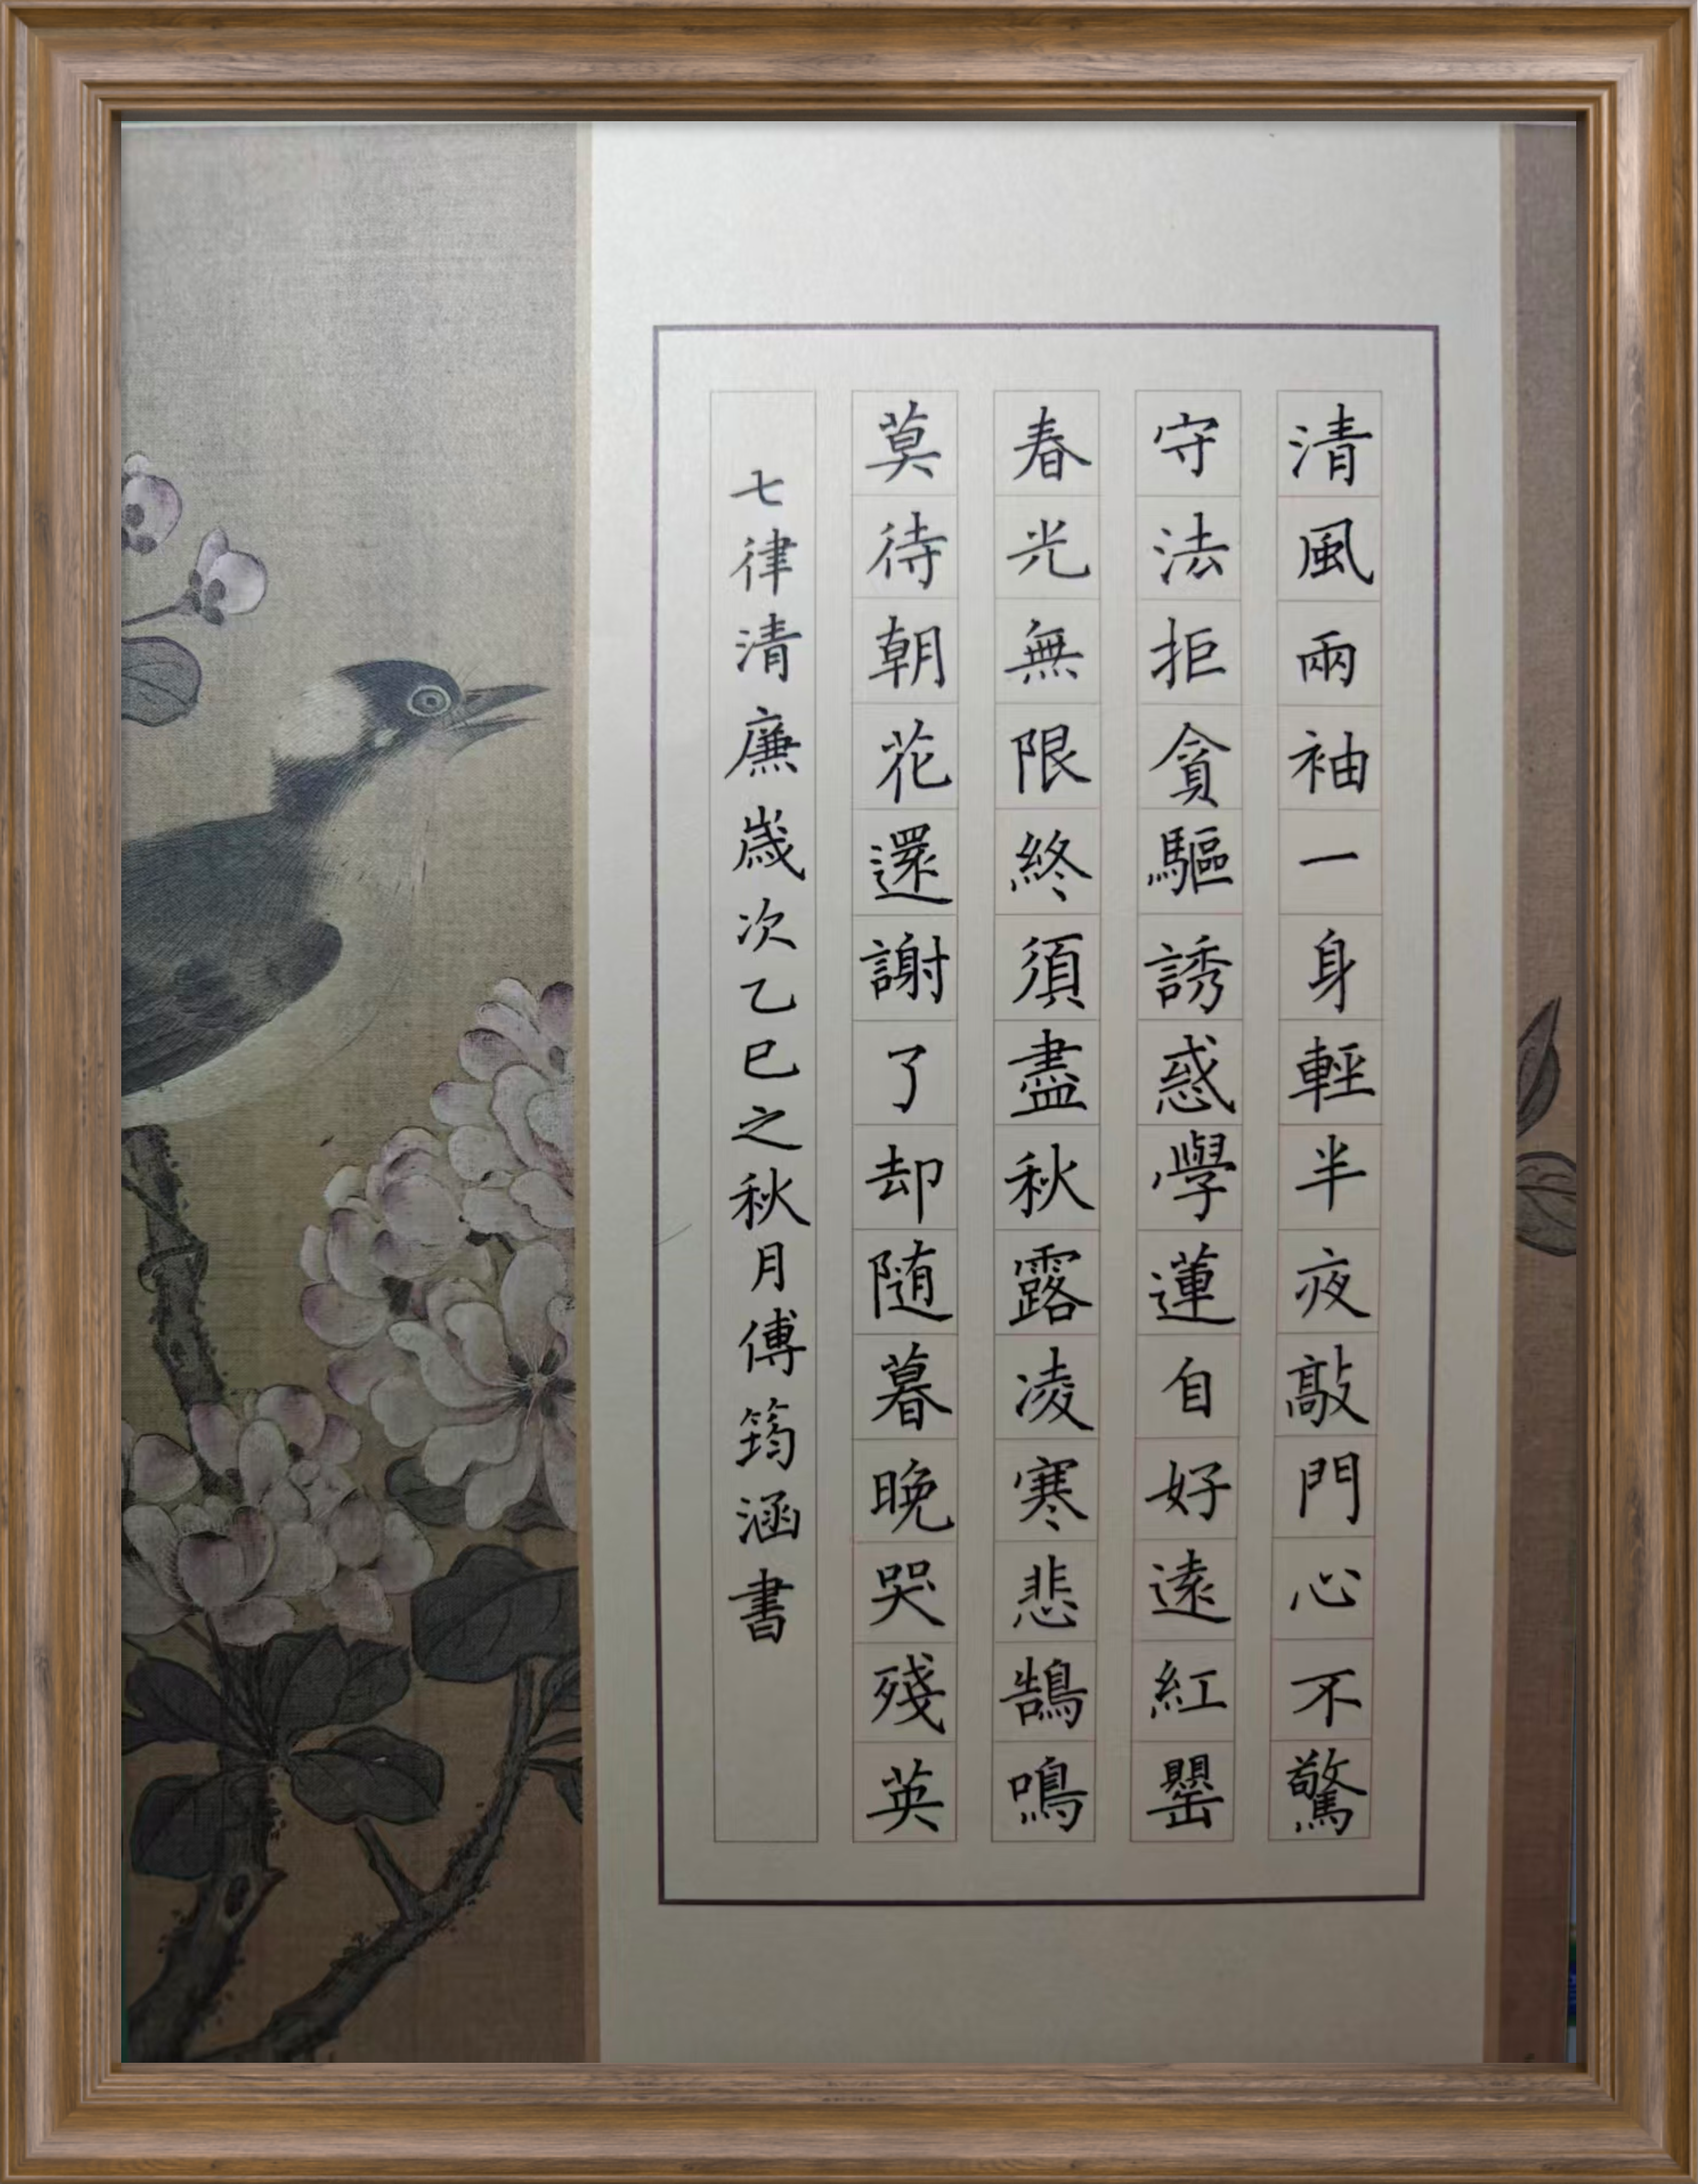 清風兩袖一身輕半夜敲門心不驚
守法拒貪驅誘惑學蓮自好遠紅罌
春光無限終須盡秋露凌寒悲鵠鳴
莫待朝花還謝了却随暮晚哭殘英
七律清廉歲次乙巳之秋月傅筠涵書